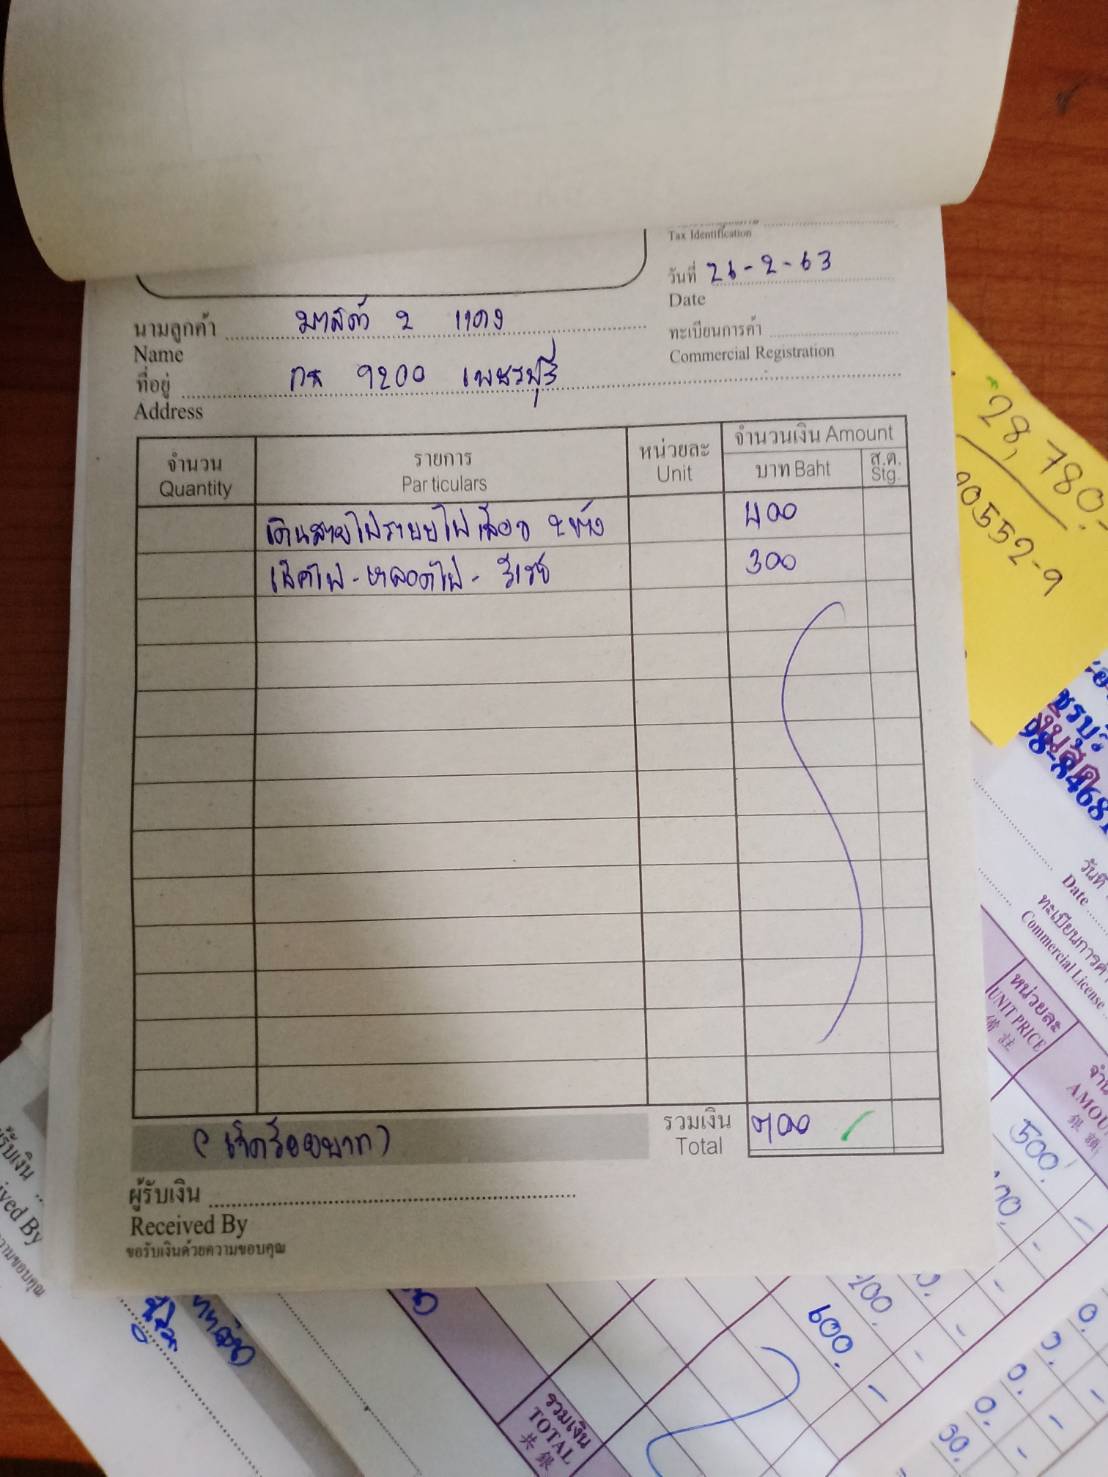 Tax Identification
วันที่ 26-2-63
Date
นามลูกค้า มาสด้า 2 แดง
Name
ทะเบียนการค้า
Commercial Registration
ที่อยู่ กธ 9200 เพชรบุรี
Address
จำนวน
Quantity
รายการ
Particulars
หน่วยละ
Unit
จำนวนเงิน Amount
บาท Baht
ส.ต.
Stg.
เดินสายไฟระบบไฟเลี้ยว 2 ข้าง 400
เช็คไฟ - หลอดไฟ - รีเลย์ 300
(เจ็ดร้อยบาท)
รวมเงิน
Total
700
ผู้รับเงิน
Received By
ขอรับเงินด้วยความขอบคุณ
28,780.-
00552-9
วันที่
Date
ทะเบียนการค้า
Commercial License
หน่วยละ
UNIT PRICE
備 註
500.
600.
รวมเงิน
TOTAL
共 銀